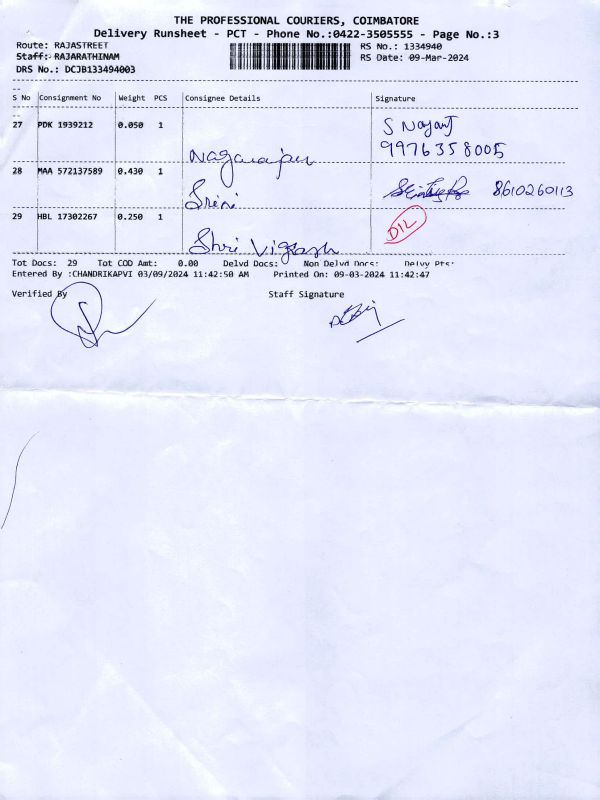 THE PROFESSIONAL COURIERS, COIMBATORE
Delivery Runsheet - PCT - Phone No.:0422-3505555 - Page No.:3
Route: RAJASTREET
RS No.: 1334940
Staff: RAJARATHINAM
RS Date: 09-Mar-2024
DRS No.: DCJB133494003
S No Consignment No Weight PCS Consignee Details Signature
27 PDK 1939212 0.050 1 Nagarajan S Nagaraj
9976358005
28 MAA 572137589 0.430 1 Srini 8610260113
29 HBL 17302267 0.250 1 Shri Vignesh D/L
Tot Docs: 29 Tot COD Amt: 0.00 Delvd Docs: Non Delvd Docs: Delvy Pts:
Entered By :CHANDRIKAPVI 03/09/2024 11:42:50 AM Printed On: 09-03-2024 11:42:47
Verified By Staff Signature